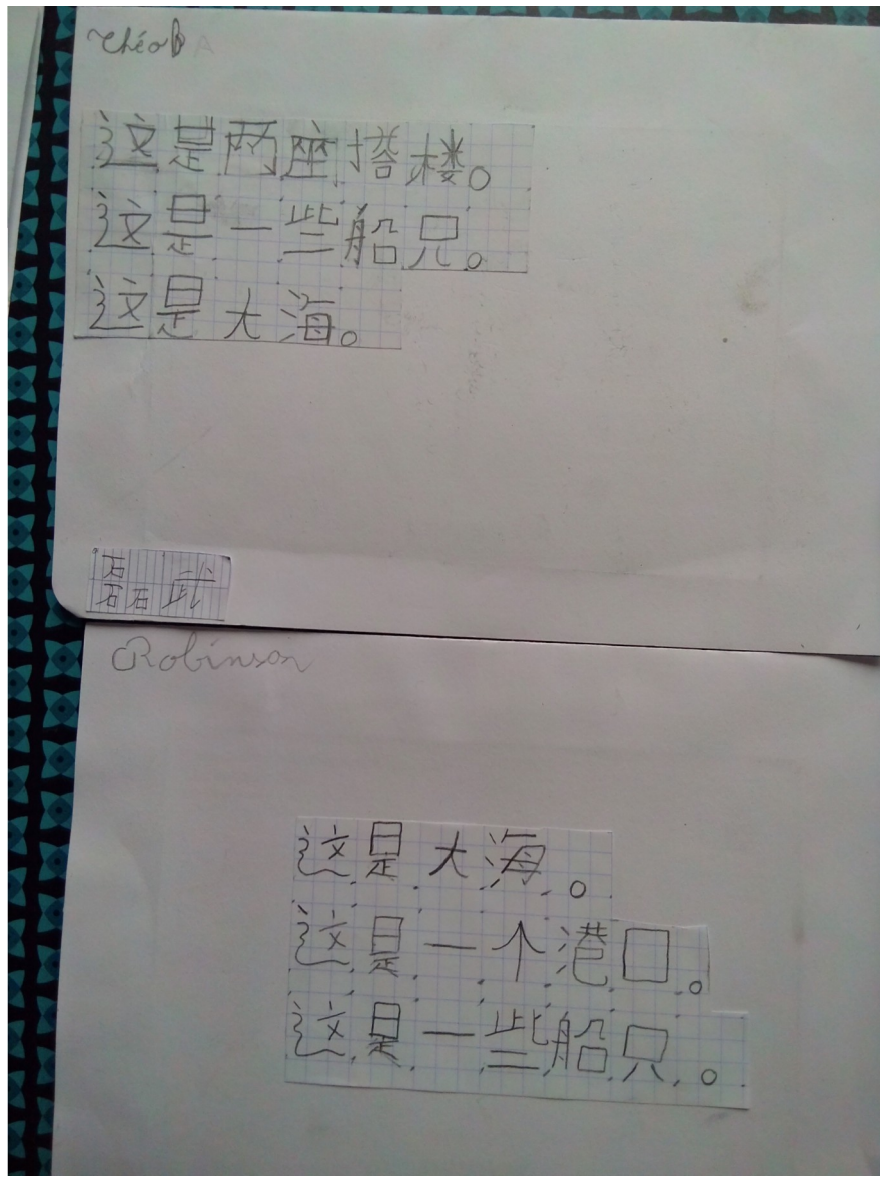 Théo
这是两座塔楼。
这是一些船只。
这是大海。
磊武
Robinson
这是大海。
这是一个港口。
这是一些船只。